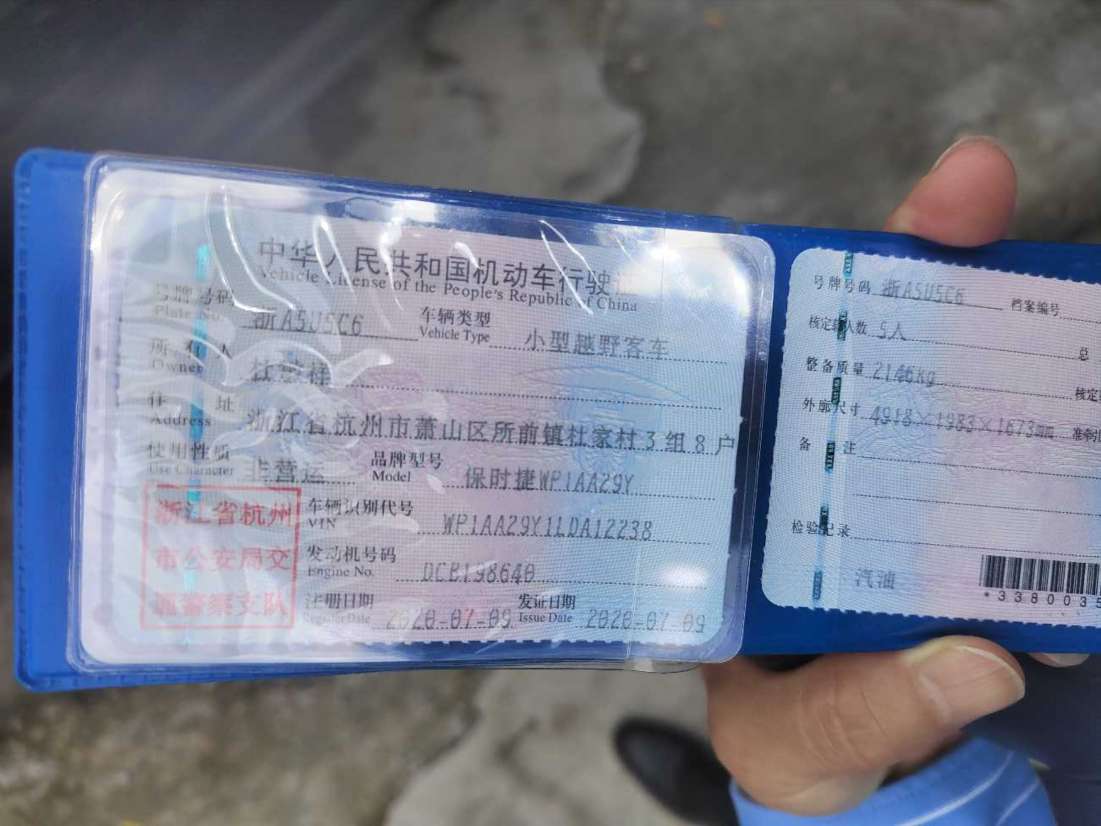 中华人民共和国机动车行驶证
Vehicle License of the People's Republic of China
号牌号码 浙A5U5C6 车辆类型 小型越野客车
Plate No. Vehicle Type
所有人
Owner
住址 浙江省杭州市萧山区所前镇杜家村3组8户
Address
使用性质 非营运 品牌型号 保时捷WP1AA29Y
Use Character Model
车辆识别代号 WP1AA29Y1LDA12238
VIN
发动机号码 DCB198640
Engine No.
注册日期 2020-07-09 发证日期 2020-07-09
Register Date Issue Date
浙江省杭州
市公安局交
通警察支队
号牌号码 浙A5U5C6 档案编号
核定载人数 5人 总
整备质量 2146kg 核定
外廓尺寸 4918×1983×1673mm 准牵
备注
检验记录
汽油
*3380035